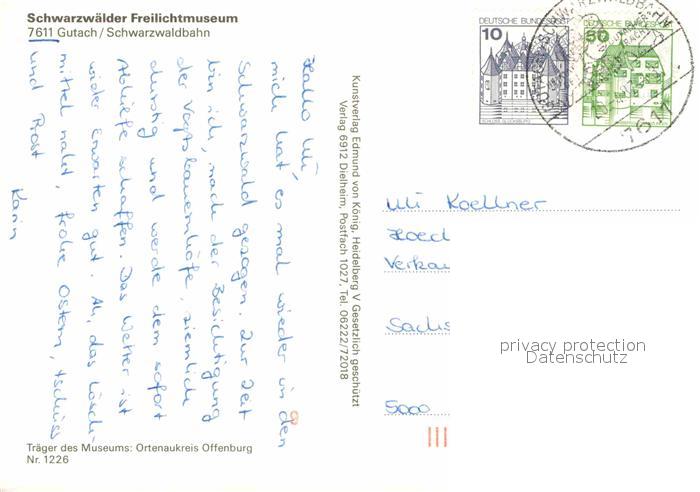 Schwarzwälder Freilichtmuseum
7611 Gutach/Schwarzwaldbahn
Hallo Uli,
mich hat es mal wieder in den
Schwarzwald gezogen. Zur Zeit
bin ich, nach der Besichtigung
der Vogtsbauernhöfe, ziemlich
durstig und werde dem sofort
Abhilfe schaffen. Das Wetter ist
wider Erwarten gut. Ah, das Lösch-
mittel naht, frohe Ostern, tschüss
und Prost
Karin
Träger des Museums: Ortenaukreis Offenburg
Nr. 1226
Kunstverlag Edmund von König, Heidelberg V Gesetzlich geschützt
Verlag 6912 Dielheim, Postfach 1027, Tel. 06222/72018
DEUTSCHE BUNDESPOST
10
SCHLOSS GLÜCKSBURG
DEUTSCHE BUNDESPOST
50
SCHWARZWALDBAHN
7611
Uli Koellner
Hoed
Verkau
Sachs
5000
privacy protection
Datenschutz